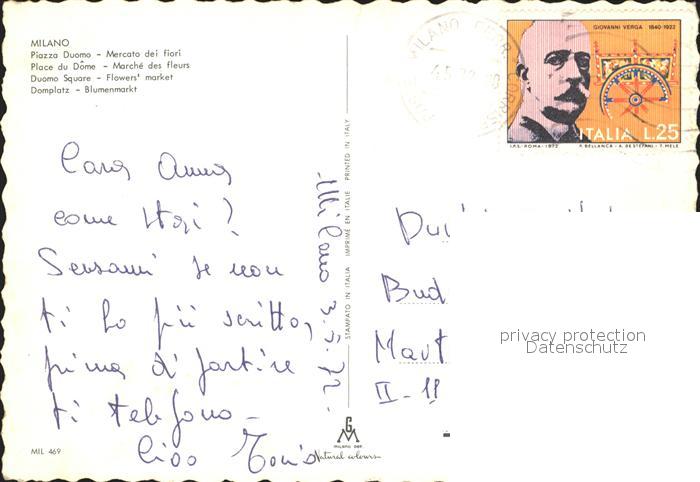 MILANO
Piazza Duomo - Mercato dei fiori
Place du Dôme - Marché des fleurs
Duomo Square - Flowers' market
Domplatz - Blumenmarkt
Cara Anna
come stai?
Scusami se non
ti ho più scritto,
prima di partire
ti telefono -
Ciao
MIL 469
Milano 3.5.72.
STAMPATO IN ITALIA IMPRIMÉ EN ITALIE PRINTED IN ITALY
GM
milano dep.
Natural colours
MILANO CORR
GIOVANNI VERGA 1840-1922
ITALIA L.25
I.P.S.-ROMA-1972 P. BELLANCA - A. DE STEFANI - T. MELE
Bud
II-18
privacy protection
Datenschutz